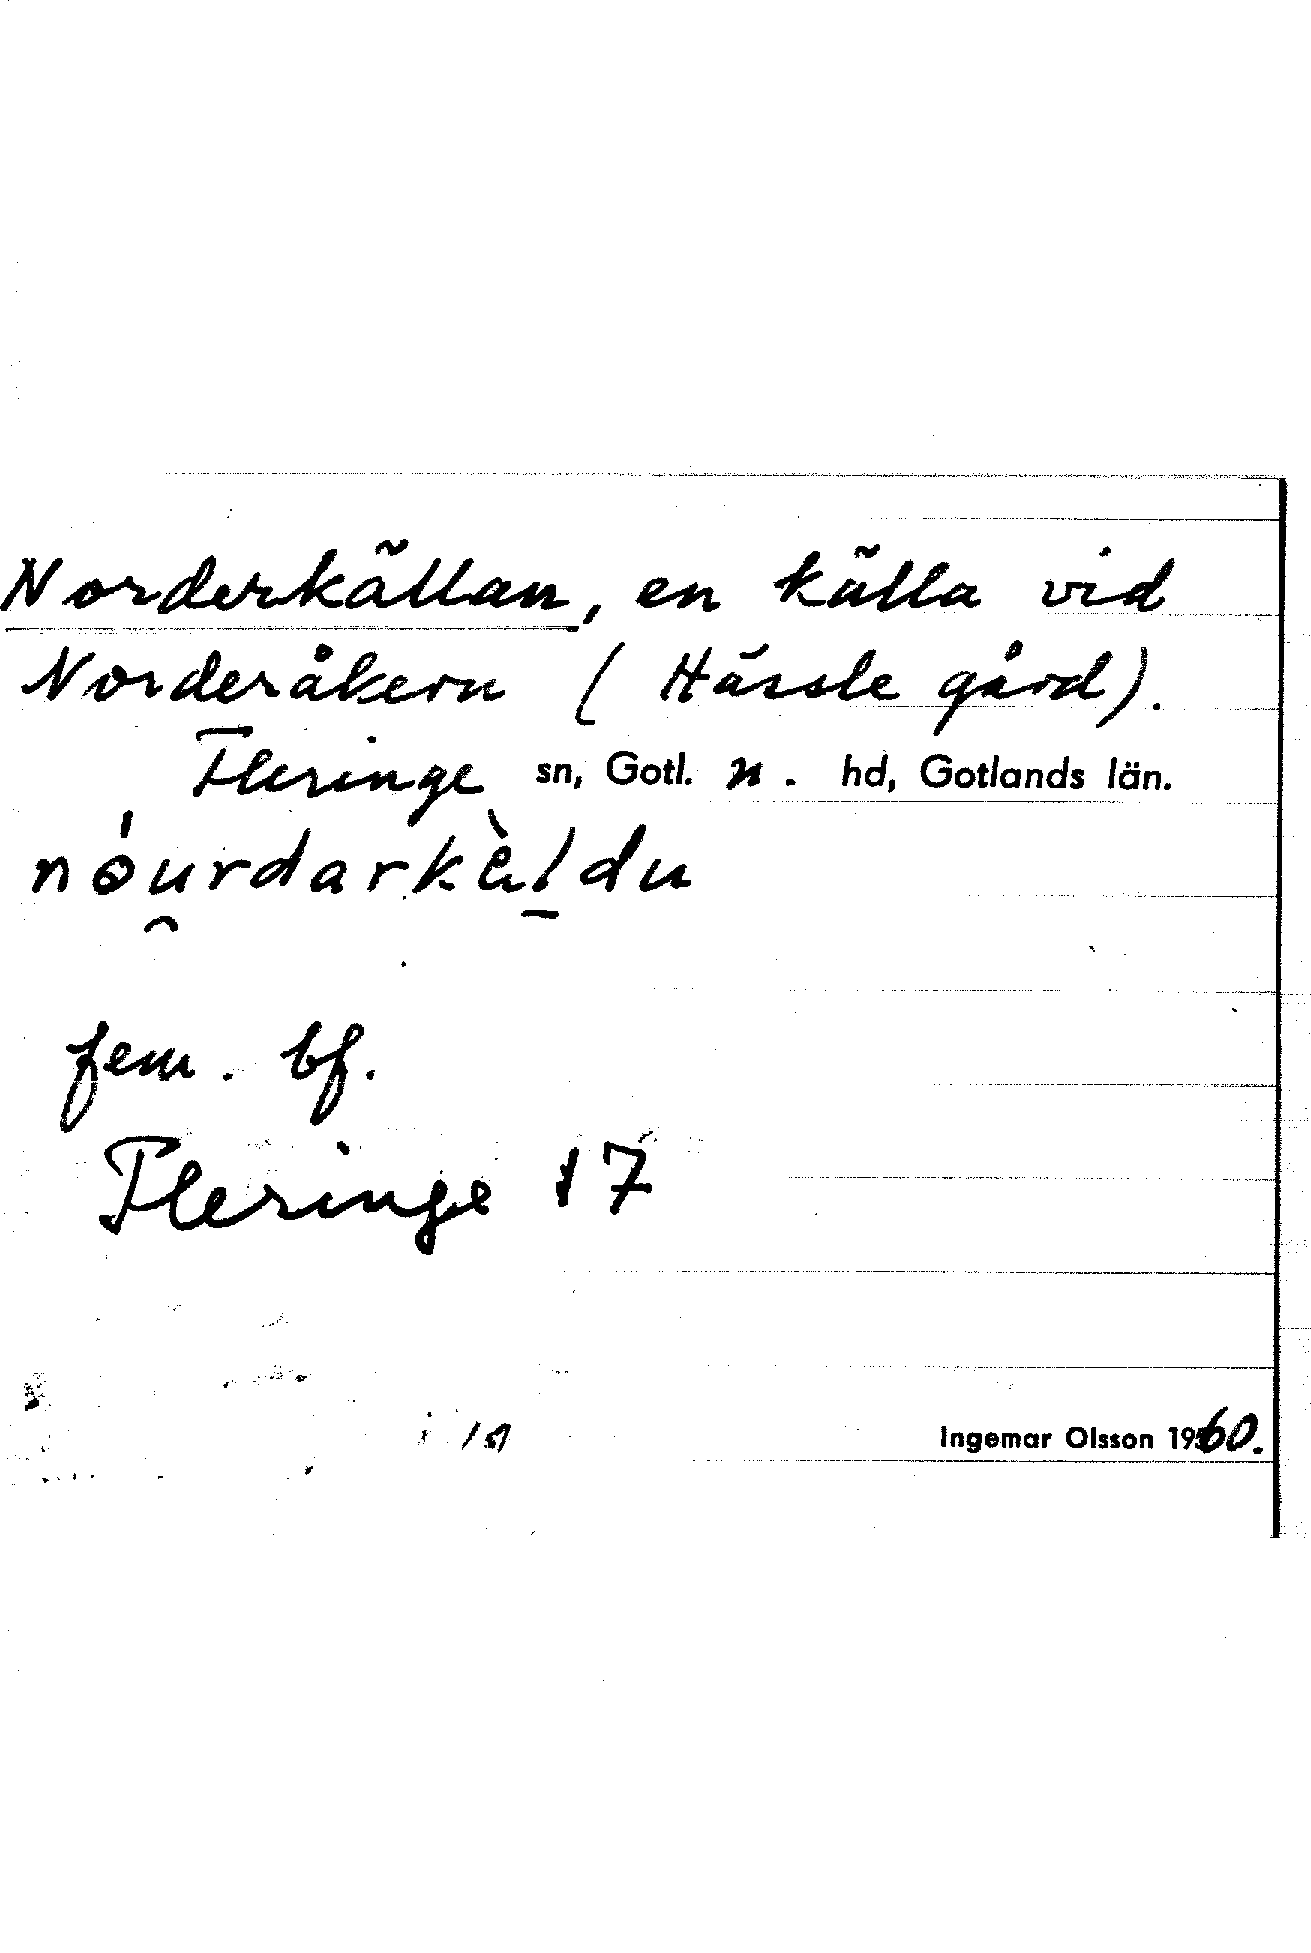 Norderkällan, en källa vid
Norderåkern (Hässle gård).
Fleringe sn, Gotl. n. hd, Gotlands län.
nóu̯rdarkæ̀l̠du
fem. bf.
Fleringe 17
Ingemar Olsson 1960.